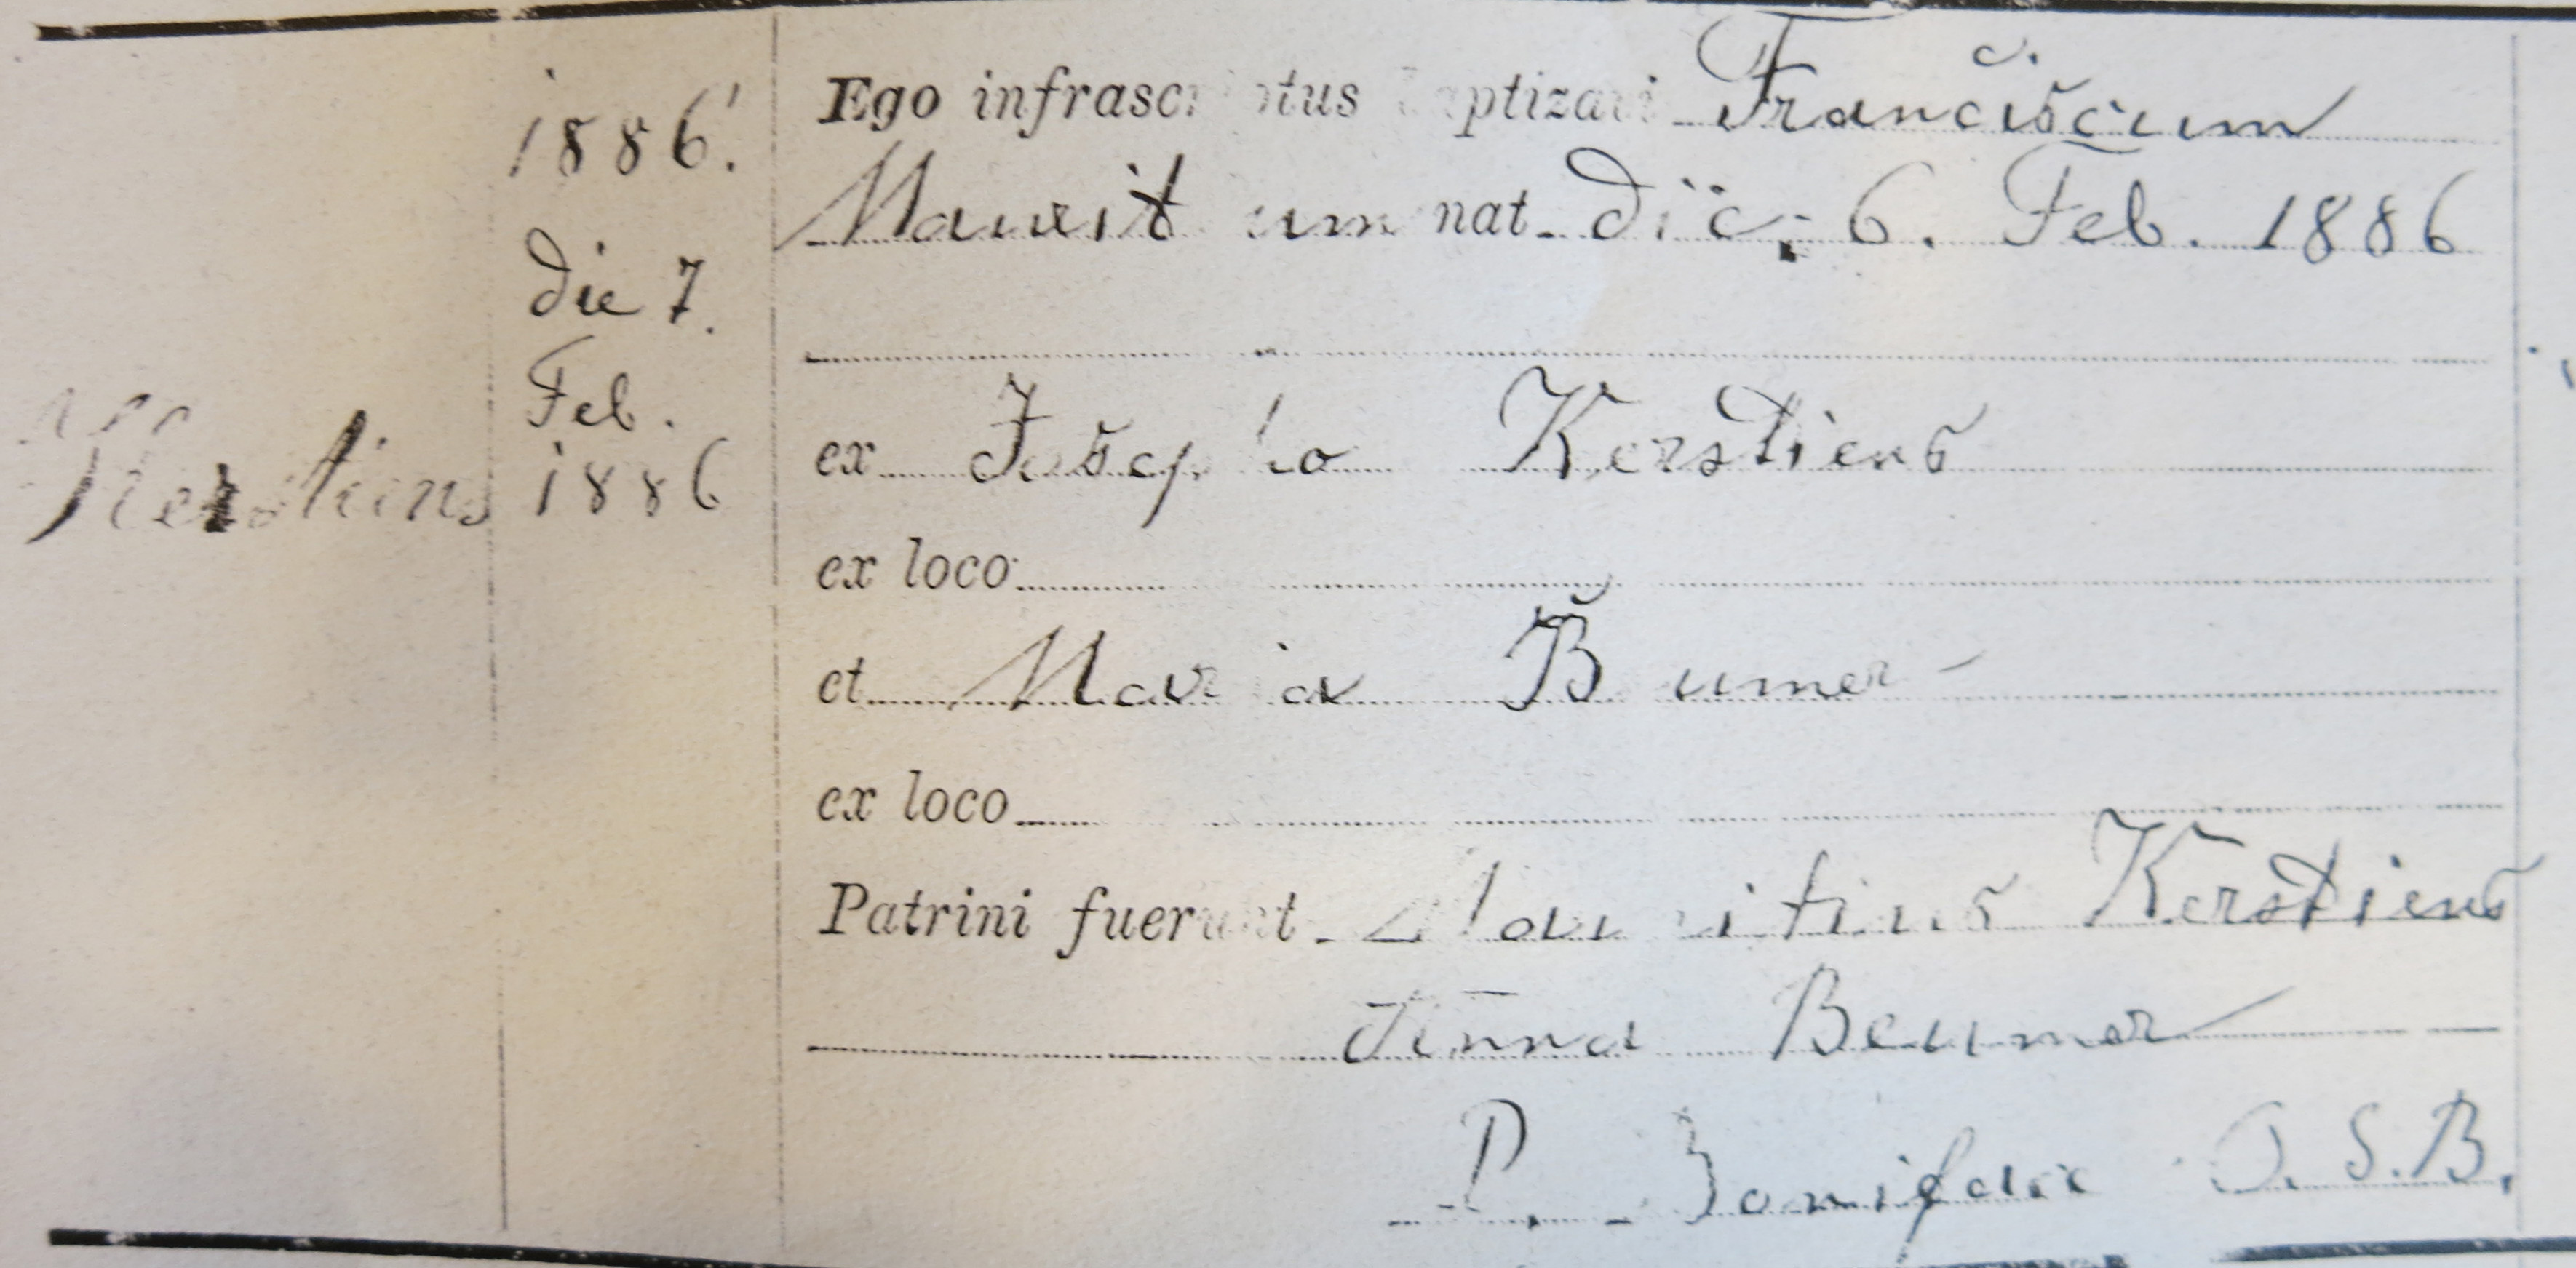 Kerstiens
1886.
die 7.
Feb.
1886
Ego infrascriptus baptizavi Franciscum
Maurit um nat. die 6. Feb. 1886
ex Josepho Kerstiens
ex loco
et Maria B umer
ex loco
Patrini fuerunt Mauritius Kerstiens
Anna Beumer
P. Bonifac O.S.B.